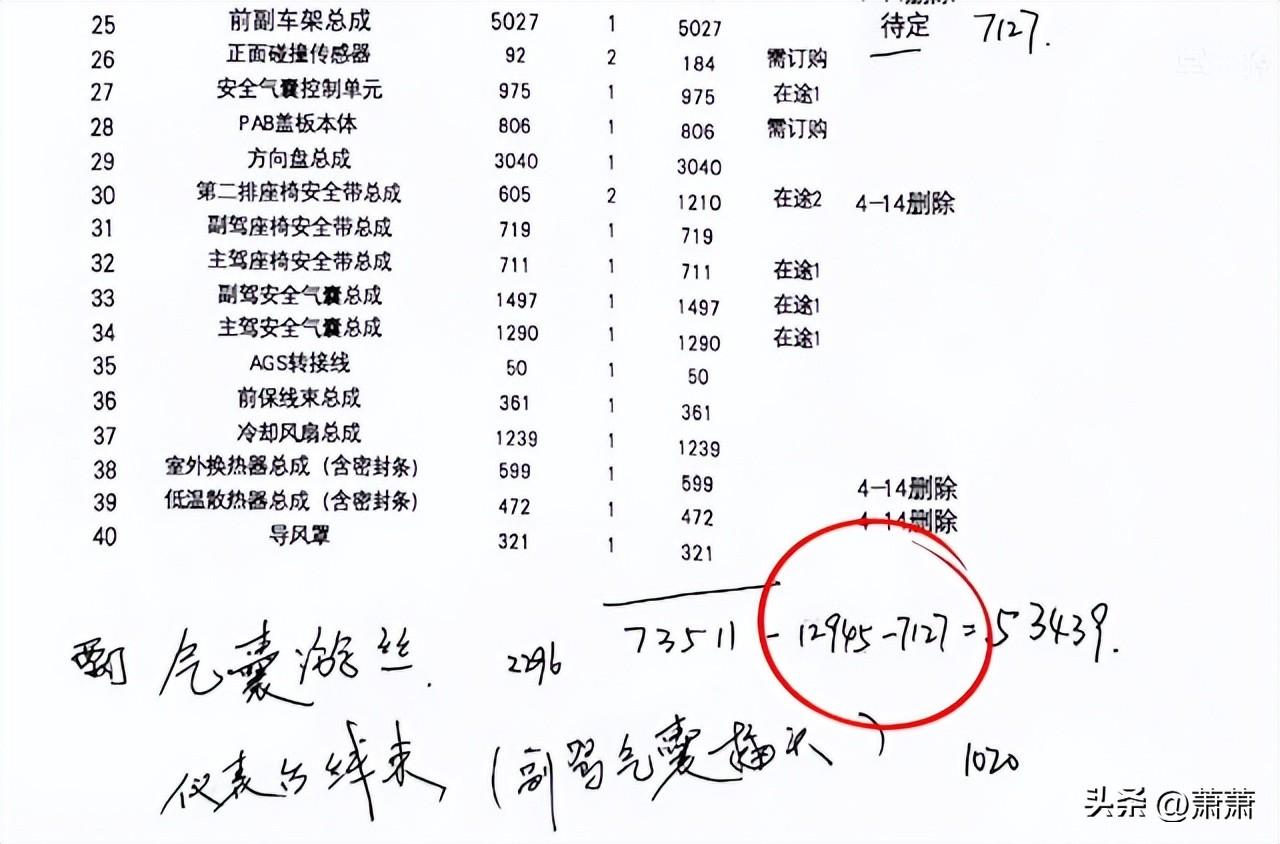 4-14删除
25 前副车架总成 5027 1 5027 待定 7127.
26 正面碰撞传感器 92 2 184 需订购
27 安全气囊控制单元 975 1 975 在途1
28 PAB盖板本体 806 1 806 需订购
29 方向盘总成 3040 1 3040
30 第二排座椅安全带总成 605 2 1210 在途2 4-14删除
31 副驾座椅安全带总成 719 1 719
32 主驾座椅安全带总成 711 1 711 在途1
33 副驾安全气囊总成 1497 1 1497 在途1
34 主驾安全气囊总成 1290 1 1290 在途1
35 AGS转接线 50 1 50
36 前保线束总成 361 1 361
37 冷却风扇总成 1239 1 1239
38 室外换热器总成（含密封条） 599 1 599 4-14删除
39 低温散热器总成（含密封条） 472 1 472 4-14删除
40 导风罩 321 1 321
73511 - 12945 - 7127 = 53439.
气囊游丝. 2296
仪表台线束 (副驾气囊插头) 1020
头条 @萧萧